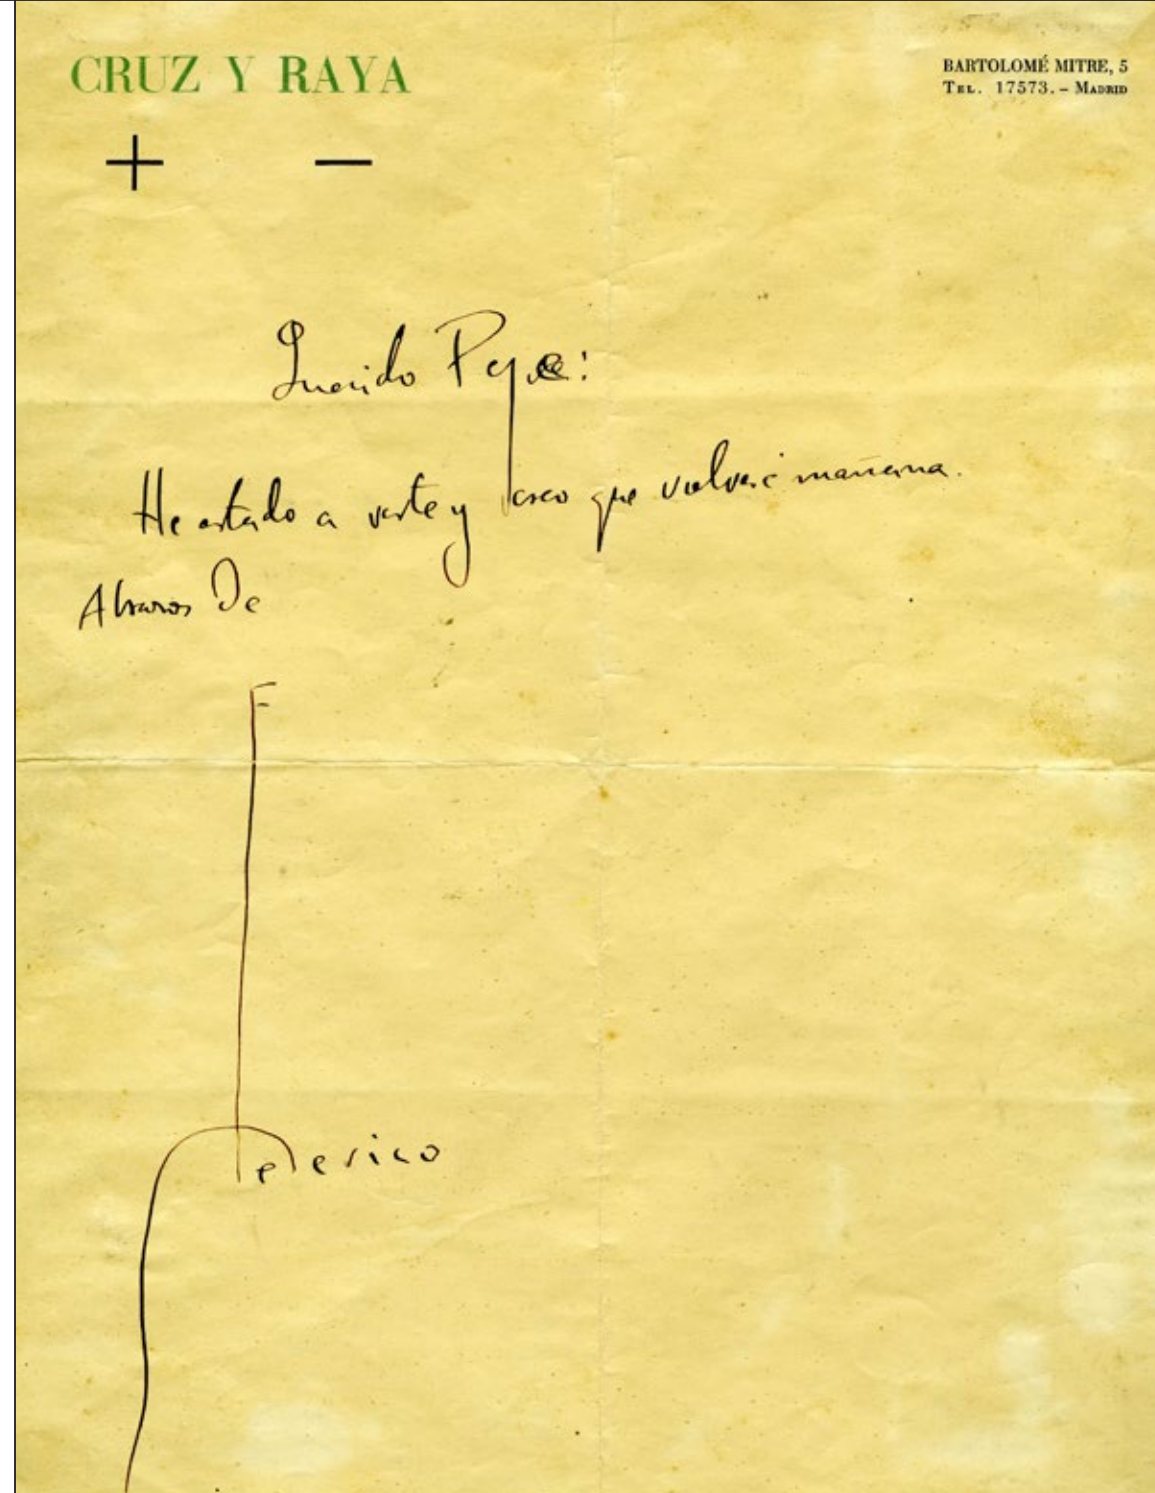 CRUZ Y RAYA
+ —
BARTOLOMÉ MITRE, 5
TEL. 17573. - MADRID
Querido Pepe:
He estado a verte y creo que volveré mañana.
Abrazos De
Federico